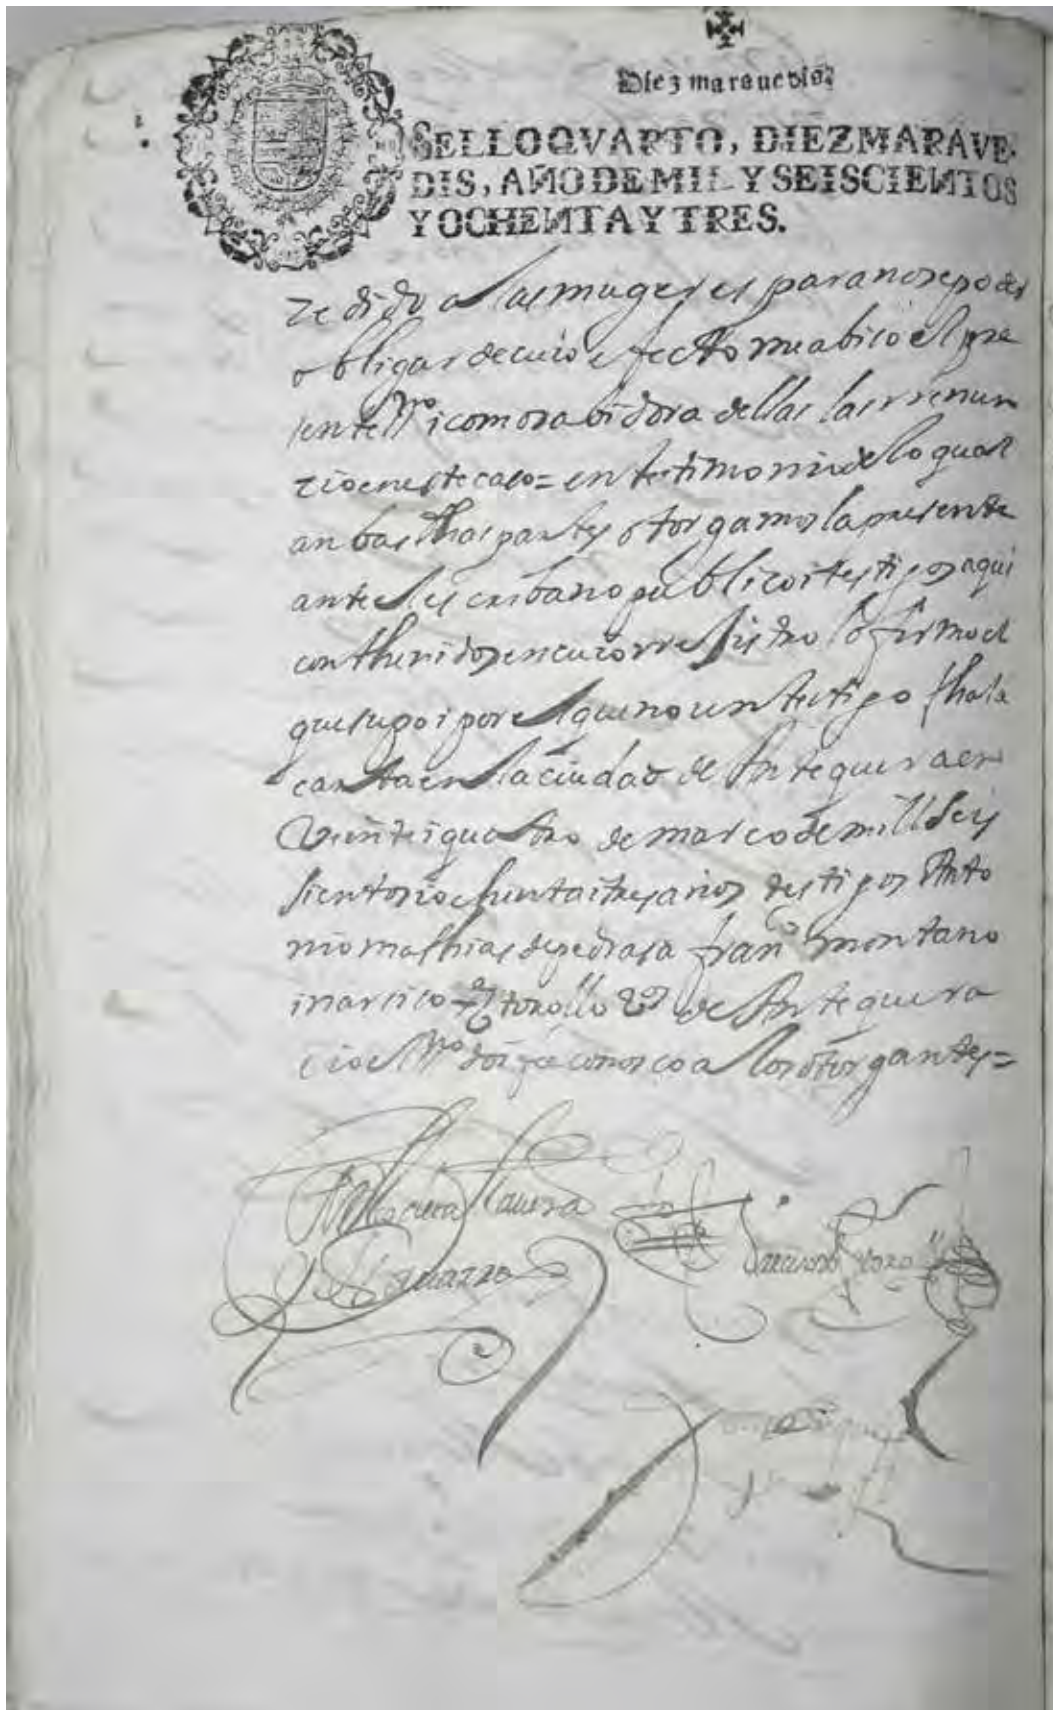 Diez marauedis
SELLO QVARTO, DIEZ MARAVE-
DIS, AÑO DE MIL Y SEISCIENTOS
Y OCHENTA Y TRES.
zedido a las mugeres para no se poder
obligar de cuio efecto me abiso el pre
sente ssno i como sabidora dellas las rrenun
zio en este caso = en testimonio de lo qual
anbas dhas partes otorgamos la presente
ante el escribano publico i testigos aqui
conthenidos en cuio rrejistro lo firmo el
que supo i por el que no un testigo fha la
carta en la ciudad de Antequera en
Veinte i quatro de março de mill seis
sientos i ochenta i tres años testigos Anto
nio mathias de pedrasa franco montano
i narciso toxollo de Antequera
i io el ssno doi fee conosco a los otorgantes =